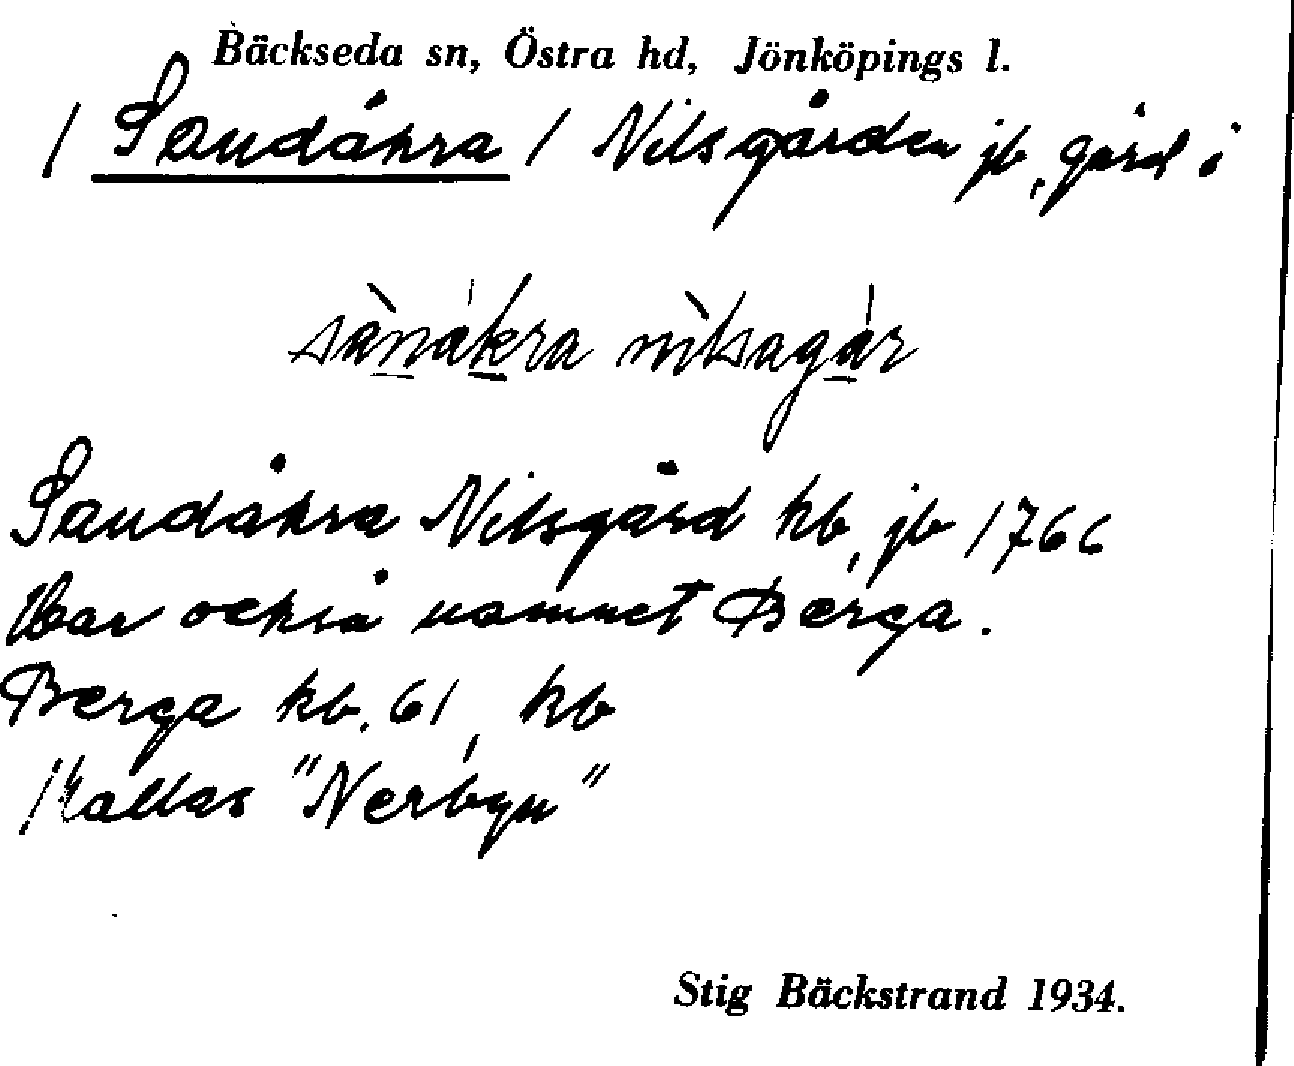 Bäckseda sn, Östra hd, Jönköpings l.
/ Sandåkra / Nilsgården jb, gård i
sànákra nìlsagár
Sandåkra Nilsgård hb, jb 1766
Har också namnet Berga.
Berga kb. 61, hb
Kallas "Nerbyn"
Stig Bäckstrand 1934.